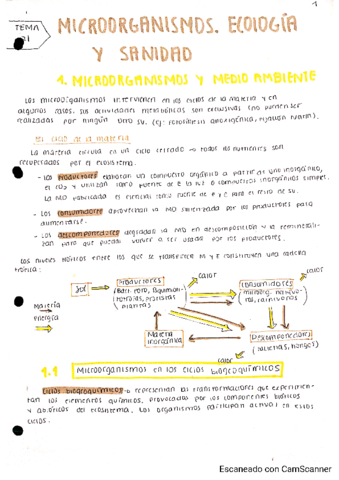 1
TEMA
21
MICROORGANISMOS. ECOLOGÍA
Y SANIDAD
1. MICROORGANISMOS Y MEDIO AMBIENTE
Los microorganismos intervienen en los ciclos de la materia y en
algunos casos, sus actividades metabólicas son exclusivas (no pueden ser
realizadas por ningún otro sv. (ej: fotosíntesis anoxigénica, fijación
El ciclo de la materia
La materia circula en un ciclo cerrado → todos los nutrientes son
recuperados por el ecosistema.
- Los productores elaboran un compuesto orgánico a partir de uno inorgánico,
el CO2 y utilizan como fuente de
La MO fabricada el esencial como fuente de e y para el resto de sv.
- Los consumidores aprovechan la MO sintetizada por los productores para
alimentarse.
- Los descomponedores degradan la MO en descomposición y la remineralizan
para que puedan volver a ser usada por los productores.
Los niveles tróficos entre los que se transfiere M y E constituyen una cadena
trófica:
calor
calor
Sol
Productores
Consumidores
Materia
Energía
Materia
inorgánica
Descomponedores
(bacterias, hongos)
calor
1.1 MICROORGANISMOS EN LOS CICLOS BIOGEOQUÍMICOS
Ciclos biogeoquímicos → representan las transformaciones que experimentan
los elementos químicos, provocadas por los componentes bióticos
y abióticos del ecosistema. Los organismos participan activo en estos
ciclos.
Escaneado con CamScanner